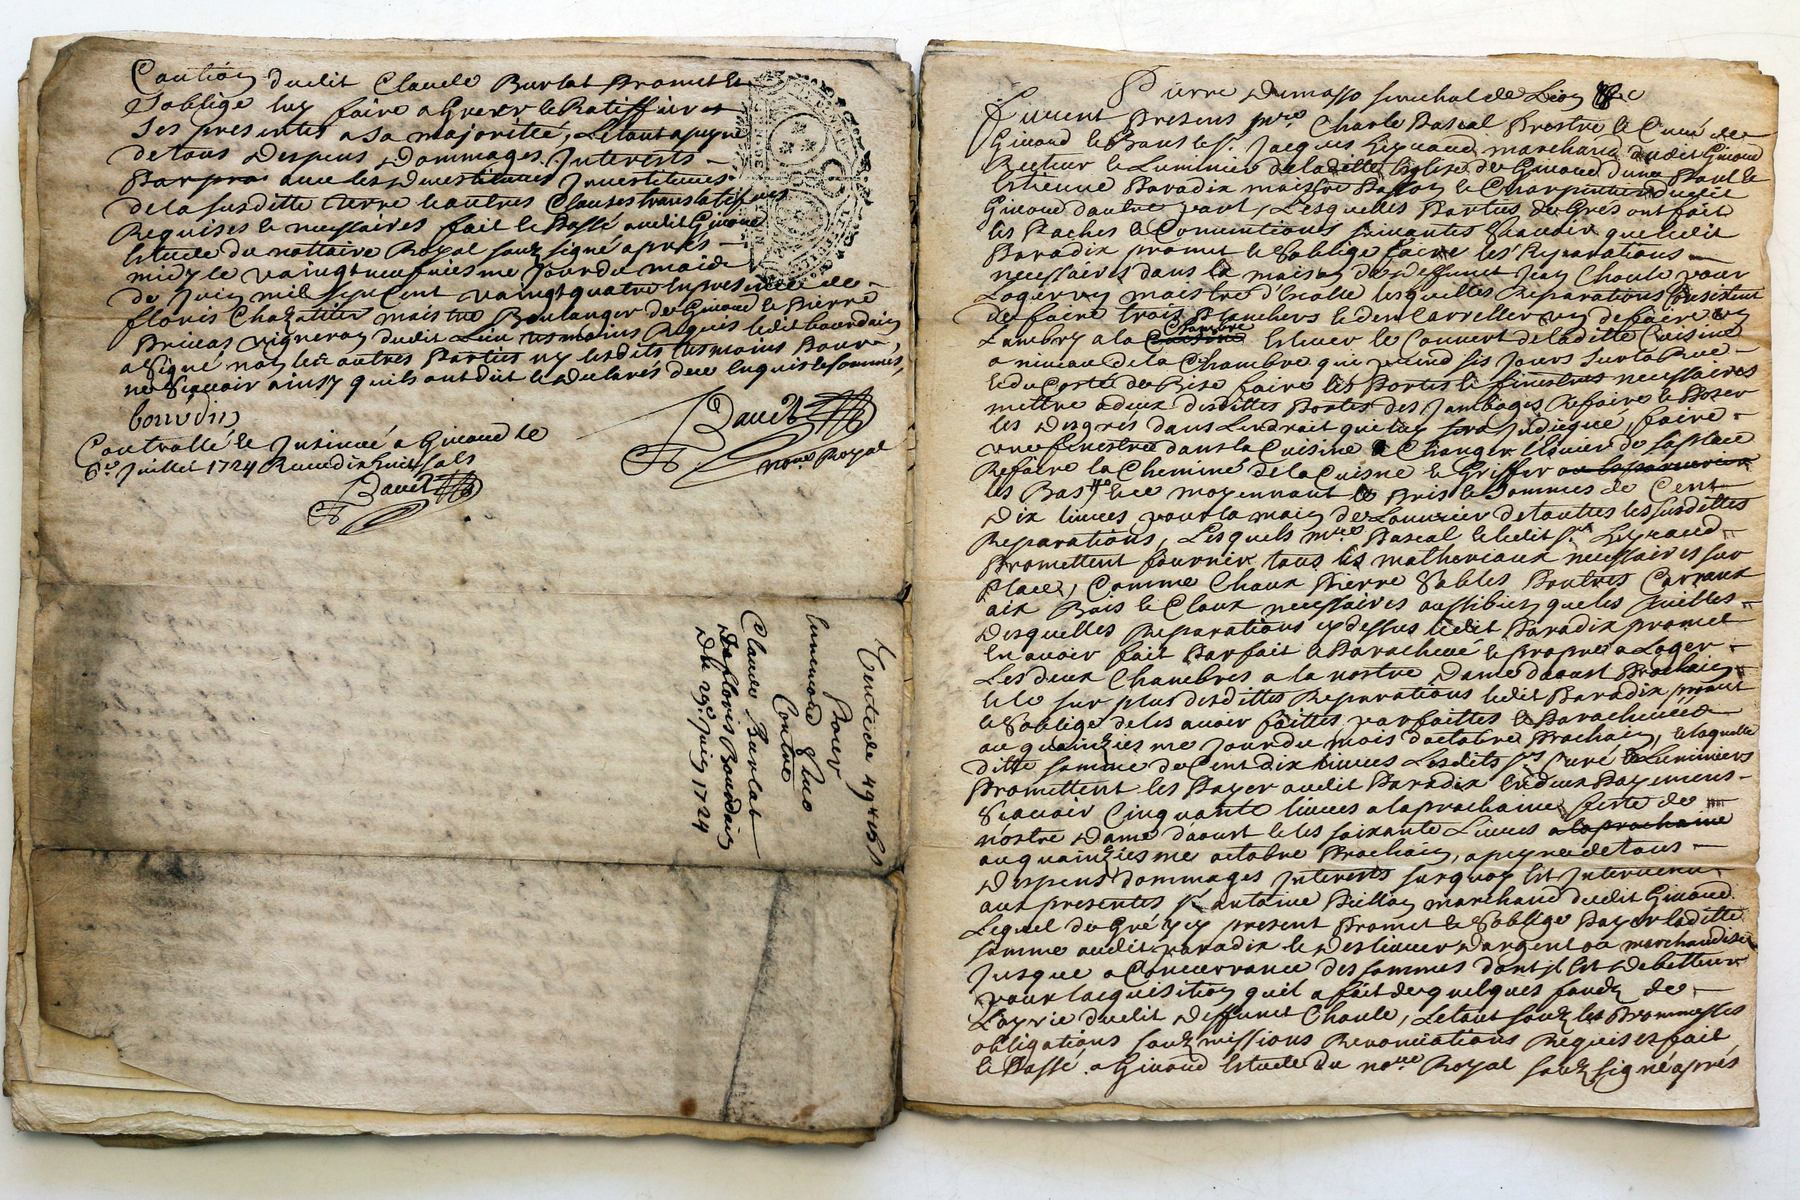 Caution dudit Claude Burlat Promet et
s'oblige luy faire agreer et Ratiffier
ses presentes a sa majoritté, Letout apeyne
de tous despens dommages Interests
avec les devestitures Investitures
de la susditte terre et autres Clauses translatifves
Requises et necessaires fait et Passé audit Givord
Estude du nottaire Royal souz signé aprés
midy le vaingt neufviesme Jour du mois
de Juin mil sept cent vaingt quatre en presence de
floris Chazottier maistre Boulanger de Givord et Pierre
vigneron dudit Lieu tesmoins Requis ledit bourdain
a signé non les autres Parties ny lesdits tesmoins Pour
ne scavoir ainsy quils ont dit et declarés de ce enquis et sommés
bourdin
Bauelt
nore Royal
Controllé et Insinué a Givord le
6e Juillet 1724 Receu dix huit sols
Bauelt
Vente de 49 15 s
Pour
Contre
Claude Burlat
de floris Bourdain
Du 29e Juin 1724
Pierre Dumas senechal de Lion
furent Presens Charle Pascal Prestre et Curé de
Givord et Jacques marchand dudit Givord
Recteur et Luminier de laditte Eglise de Givord dune Part et
Estienne Paradix maistre Masson et Charpentier dudit
Givord dautre part, Lesquelles Parties de Grés ont fait
les Paches et Conventions suivantes Scavoir que ledit
Paradix promet et s'oblige faire les Reparations
necessaires dans la maison de deffunct Jean Chaule pour
Loger un maistre d'Escolle lesquelles Reparations Consistent
de faire trois Planchers et den Carreller un de faire un
Lambry a la Chambre Eslever le Couvert de laditte Cuisine
a niveau de la Chambre qui prend ses Jours sur la Rue
et du Costé de Bise faire les Portes et fenestres necessaires
mettre a deux desdittes Portes des Jambages Refaire et Poser
les degrés dans Lendroit quil luy sera Judicqué, faire
une fenestre dans la Cuisine Changer Levier de sa place
Refaire la Cheminé de la Cuisine et Griffer
les Bas moyennant le Pris et sommes de Cent
dix livres pour la main de Louvrier de toutes les susdittes
Reparations, Lesquels Pascal et ledit
Promettent fournir tous les matheriaux necessaires sur
Place, Comme Chaux Pierre Sables Poutres Carraux
aix Bois et Cloux necessaires aussibien que les
desquelles Reparations cy dessus ledit Paradix promet
En avoir fait Parfait et Paracheve et propre a Loger
Les deux Chambres a la nostre Dame daoust Prochain
et le sur plus desdittes Reparations ledit Paradix promet
et s'oblige de les avoir faittes parfaittes et Parachevées
au quainziesme Jour du mois doctobre Prochain, et laquelle
ditte somme de Cent dix livres Lesdits srs curé et Luminiers
Promettent les Payer audit Paradix En deux Payemens
Scavoir Cinquante livres a la prochaine feste de
nostre Dame daoust et les soixante Livres a la prochaine
au quainziesme octobre Prochain, a peyne de tous
despens dommages Interests sur quoy Est Intervenu
aux presentes sr antoine Pillon marchand dudit Givord
Lequel de Gré icy present Promet et s'oblige Payer laditte
somme audit paradix et deslivrer dargent ou marchandise
Jusque a Concurrance des sommes dont il est debitteur
pour lacquisition quil a fait de quelques fondz de
L'oyrie dudit deffunct Chaule, Letout souz les Prommesses
obligations souzmissions Renonciations Requises fait
et Passé a Givord Estude du nore Royal souz signé aprés